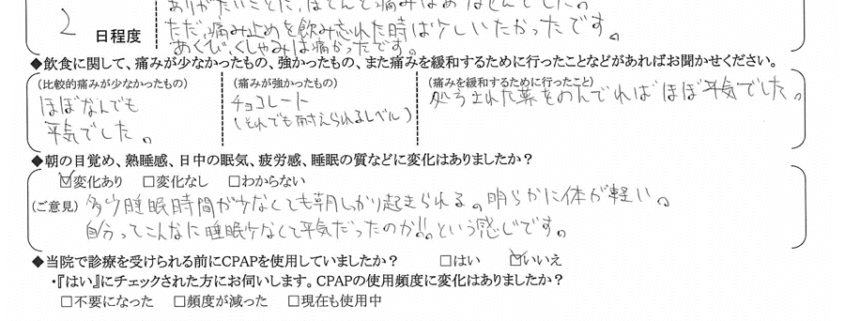 ありがたいことに、ほとんど痛みはありませんでした。
ただ、痛み止めを飲み忘れた時は少しいたかったです。
2 日程度
あくび、くしゃみは痛かったです。
◆飲食に関して、痛みが少なかったもの、強かったもの、また痛みを緩和するために行ったことなどがあればお聞かせください。
(比較的痛みが少なかったもの) (痛みが強かったもの) (痛みを緩和するために行ったこと)
ほぼなんでも
平気でした。
チョコレート
(それでも耐えられるレベル)
処方された薬をのんでればほぼ平気でした。
◆朝の目覚め、熟睡感、日中の眠気、疲労感、睡眠の質などに変化はありましたか?
☑変化あり □変化なし □わからない
(ご意見) 多少睡眠時間が少なくても朝しっかり起きられる。明らかに体が軽い。
自分ってこんなに睡眠少なくて平気だったのか!!という感じです。
◆当院で診療を受けられる前にCPAPを使用していましたか? □はい ☑いいえ
・『はい』にチェックされた方にお伺いします。CPAPの使用頻度に変化はありましたか?
□不要になった □頻度が減った □現在も使用中